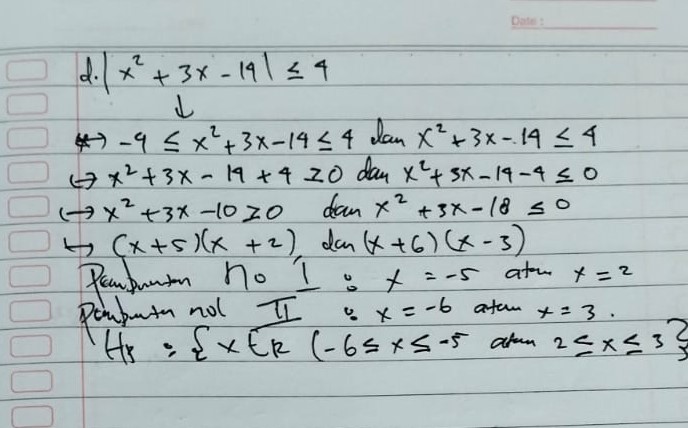 Date :
d. | x² + 3x - 14 | ≤ 4
↓
↔ -4 ≤ x² + 3x - 14 ≤ 4 dan x² + 3x - 14 ≤ 4
↔ x² + 3x - 14 + 4 ≥ 0 dan x² + 3x - 14 - 4 ≤ 0
↔ x² + 3x - 10 ≥ 0 dan x² + 3x - 18 ≤ 0
↳ (x + 5)(x + 2) dan (x + 6)(x - 3)
Pembuatan no I : x = -5 atau x = 2
Pembuatan nol II : x = -6 atau x = 3.
Hp : { x ∈ R ( -6 ≤ x ≤ -5 atau 2 ≤ x ≤ 3 }